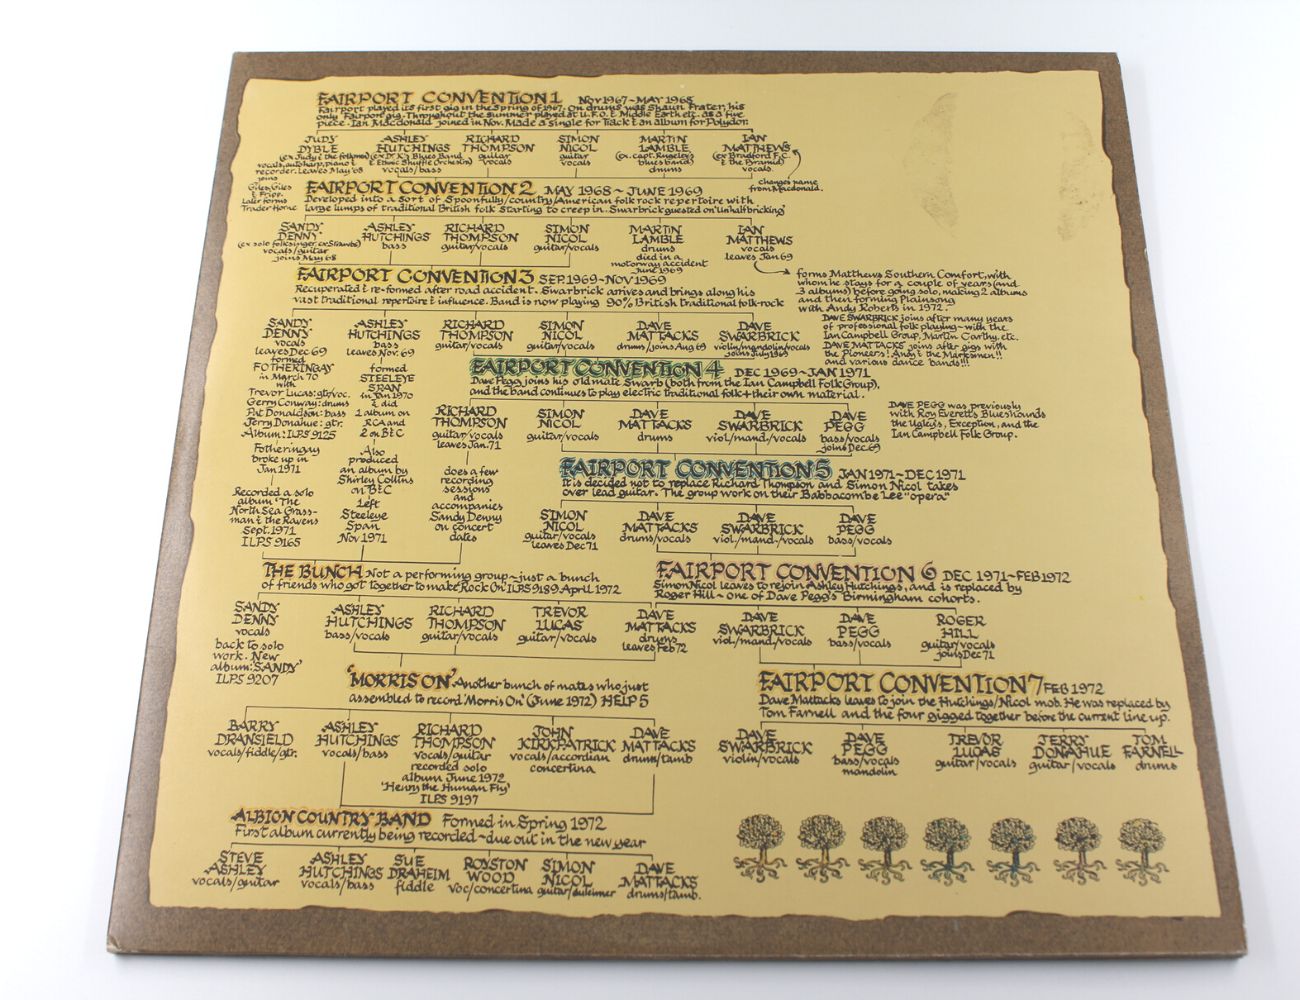 FAIRPORT CONVENTION 1 NOV 1967~MAY 1968
Fairport played its first gig in the Spring of 1967. On drums was Shaun Frater, his
only 'Fairport' gig. Throughout the summer played at U.F.O. & Middle Earth etc. as a five
piece. Ian Macdonald joined in Nov. Made a single for Track & an album for Polydor.
JUDY
DYBLE
(ex Judy & the folkmen)
vocals, autoharp, piano &
recorder. leaves May '68
joins
Giles, Giles
& Fripp.
Later forms
Trader Horne
ASHLEY
HUTCHINGS
(ex Dr. K's Blues Band
& Ethnic Shuffle Orchestra)
vocals/bass
RICHARD
THOMPSON
guitar
vocals
SIMON
NICOL
guitar
vocals
MARTIN
LAMBLE
(ex. capt. Kingsley's
blues band)
drums
IAN
MATTHEWS
(ex Bradford F.C.
& the Pyramid)
vocals.
changes name
from Macdonald.
FAIRPORT CONVENTION 2 MAY 1968~JUNE 1969
Developed into a sort of Spoonfully/country/American folk rock repertoire with
large lumps of traditional British folk starting to creep in. Swarbrick guested on 'Unhalfbricking'
SANDY
DENNY
(ex solo folksinger, ex Strawbs)
vocals/guitar
joins May 68
ASHLEY
HUTCHINGS
bass
RICHARD
THOMPSON
guitar/vocals
SIMON
NICOL
guitar/vocals
MARTIN
LAMBLE
drums
died in a
motorway accident
June 1969
IAN
MATTHEWS
vocals
leaves Jan 69
forms Matthews Southern Comfort, with
whom he stays for a couple of years (and
3 albums) before going solo, making 2 albums
and then forming Plainsong
with Andy Roberts in 1972.
FAIRPORT CONVENTION 3 SEP. 1969~NOV 1969
Recuperated & re-formed after road accident. Swarbrick arrives and brings along his
vast traditional repertoire & influence. Band is now playing 90% British traditional folk-rock
SANDY
DENNY
vocals
leaves Dec 69
formed
FOTHERINGAY
in March 70
with
Trevor Lucas: gtr/voc.
Gerry Conway: drums
Pat Donaldson: bass
Jerry Donahue: gtr.
Album: ILPS 9125
Fotheringay
broke up in
Jan 1971
Recorded a solo
album 'The
North Sea Grass-
man & the Ravens
Sept. 1971
ILPS 9165
ASHLEY
HUTCHINGS
bass
leaves Nov. 69
formed
STEELEYE
SPAN
in Jan 1970
& did
1 album on
RCA and
2 on B&C
Also
produced
an album by
Shirley Collins
on B&C
Left
Steeleye
Span
Nov 1971
RICHARD
THOMPSON
guitar/vocals
SIMON
NICOL
guitar/vocals
DAVE
MATTACKS
drums/joins Aug 69
DAVE
SWARBRICK
violin/mandolin/vocals
joins July 1969
DAVE SWARBRICK joins after many years
of professional folk playing~with the
Ian Campbell Group, Martin Carthy, etc.
DAVE MATTACKS joins after gigs with
the Pioneers! Andy & the Marksmen!!
and various dance bands!!!
FAIRPORT CONVENTION 4 DEC 1969~JAN 1971
Dave Pegg joins his old mate Swarb (both from the Ian Campbell Folk Group),
and the band continues to play electric traditional folk + their own material.
RICHARD
THOMPSON
guitar/vocals
leaves Jan. 71
does a few
recording
sessions
and
accompanies
Sandy Denny
on concert
dates
SIMON
NICOL
guitar/vocals
DAVE
MATTACKS
drums
DAVE
SWARBRICK
viol/mand/vocals
DAVE
PEGG
bass/vocals
joins Dec 69
DAVE PEGG was previously
with Roy Everett's Blueshounds
the Ugly's, Exception, and the
Ian Campbell Folk Group.
FAIRPORT CONVENTION 5 JAN 1971~DEC 1971
It is decided not to replace Richard Thompson and Simon Nicol takes
over lead guitar. The group work on their Babbacombe Lee "opera"
SIMON
NICOL
guitar/vocals
leaves Dec 71
DAVE
MATTACKS
drums/vocals
DAVE
SWARBRICK
viol./mand./vocals
DAVE
PEGG
bass/vocals
THE BUNCH Not a performing group~just a bunch
of friends who got together to make 'Rock On' ILPS 9189. April 1972
SANDY
DENNY
vocals
back to solo
work. New
album: 'SANDY'
ILPS 9207
ASHLEY
HUTCHINGS
bass/vocals
RICHARD
THOMPSON
guitar/vocals
TREVOR
LUCAS
guitar/vocals
DAVE
MATTACKS
drums
leaves Feb 72
FAIRPORT CONVENTION 6 DEC 1971~FEB 1972
Simon Nicol leaves to rejoin Ashley Hutchings, and is replaced by
Roger Hill~one of Dave Pegg's Birmingham cohorts.
DAVE
SWARBRICK
viol./mand/vocals
DAVE
PEGG
bass/vocals
ROGER
HILL
guitar/vocals
joins Dec 71
'MORRIS ON' Another bunch of mates who just
assembled to record 'Morris On' (June 1972) HELP 5
BARRY
DRANSFIELD
vocals/fiddle/gtr.
ASHLEY
HUTCHINGS
vocals/bass
RICHARD
THOMPSON
vocals/guitar
recorded solo
album June 1972
'Henry the Human Fly'
ILPS 9197
JOHN
KIRKPATRICK
vocals/accordian
concertina
DAVE
MATTACKS
drums/tamb
FAIRPORT CONVENTION 7 FEB 1972
Dave Mattacks leaves to join the Hutchings/Nicol mob. He was replaced by
Tom Farnell and the four gigged together before the current line up.
DAVE
SWARBRICK
violin/vocals
DAVE
PEGG
bass/vocals
mandolin
TREVOR
LUCAS
guitar/vocals
JERRY
DONAHUE
guitar/vocals
TOM
FARNELL
drums
ALBION COUNTRY BAND Formed in Spring 1972
First album currently being recorded~due out in the new year
STEVE
ASHLEY
vocals/guitar
ASHLEY
HUTCHINGS
vocals/bass
SUE
DRAHEIM
fiddle
ROYSTON
WOOD
voc/concertina
SIMON
NICOL
guitar/dulcimer
DAVE
MATTACKS
drums/tamb.